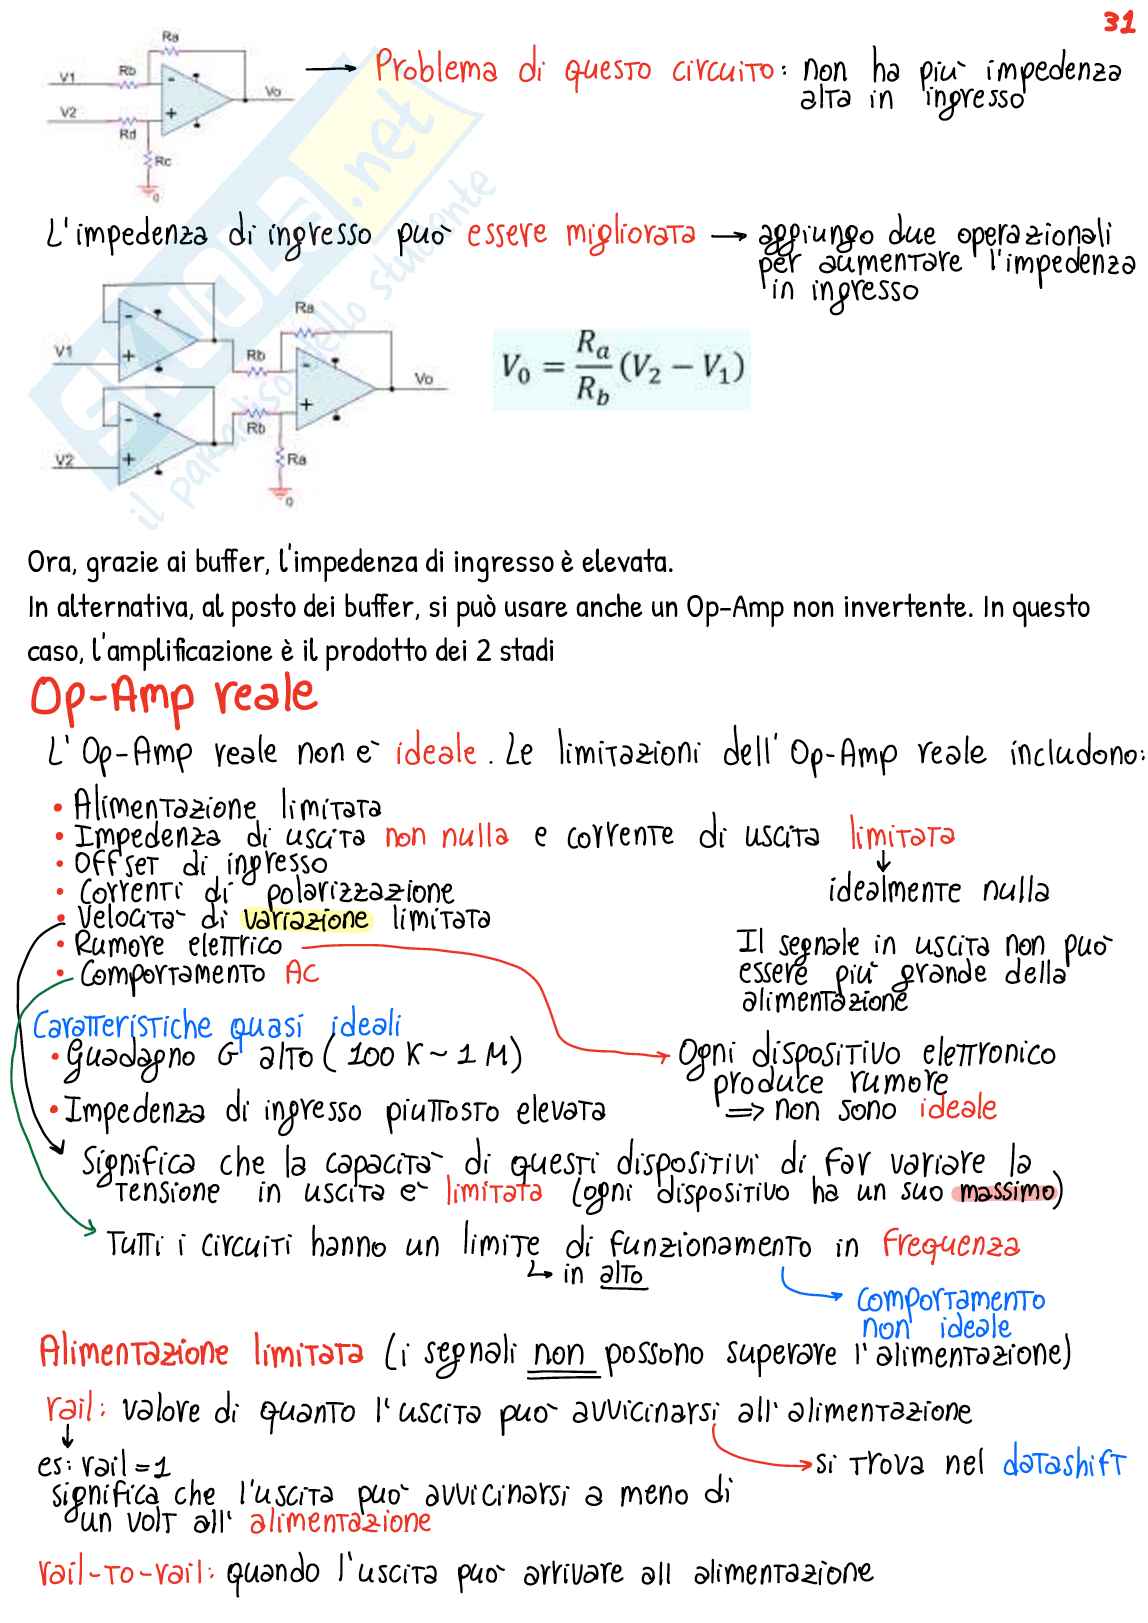 31
Ra
Rb
V1
V2
Rd
Rc
Vo
0
→ Problema di questo circuito: non ha più impedenza
alta in ingresso
L'impedenza di ingresso può essere migliorata → aggiungo due operazionali
per aumentare l'impedenza
in ingresso
V1
V2
Rb
Rb
Ra
Ra
Vo
0
V₀ = Ra/Rb (V₂ − V₁)
SKUOLA.net
il paradiso dello studente
Ora, grazie ai buffer, l'impedenza di ingresso è elevata.
In alternativa, al posto dei buffer, si può usare anche un Op-Amp non invertente. In questo
caso, l'amplificazione è il prodotto dei 2 stadi
Op-Amp reale
L'Op-Amp reale non è ideale. Le limitazioni dell'Op-Amp reale includono:
• Alimentazione limitata
• Impedenza di uscita non nulla e corrente di uscita limitata
• Offset di ingresso
• Correnti di polarizzazione
idealmente nulla
• Velocità di variazione limitata
• Rumore elettrico
• Comportamento AC
Il segnale in uscita non può
essere più grande della
alimentazione
Caratteristiche quasi ideali
• Guadagno G alto (100 K ~ 1 M)
• Impedenza di ingresso piuttosto elevata
Ogni dispositivo elettronico
produce rumore
=> non sono ideale
Significa che la capacità di questi dispositivi di far variare la
tensione in uscita è limitata (ogni dispositivo ha un suo massimo)
Tutti i circuiti hanno un limite di funzionamento in frequenza
↳ in alto
comportamento
non ideale
Alimentazione limitata (i segnali non possono superare l'alimentazione)
rail: valore di quanto l'uscita può avvicinarsi all'alimentazione
si trova nel datashift
es: rail = 1
significa che l'uscita può avvicinarsi a meno di
un volt all'alimentazione
rail-to-rail: quando l'uscita può arrivare all alimentazione